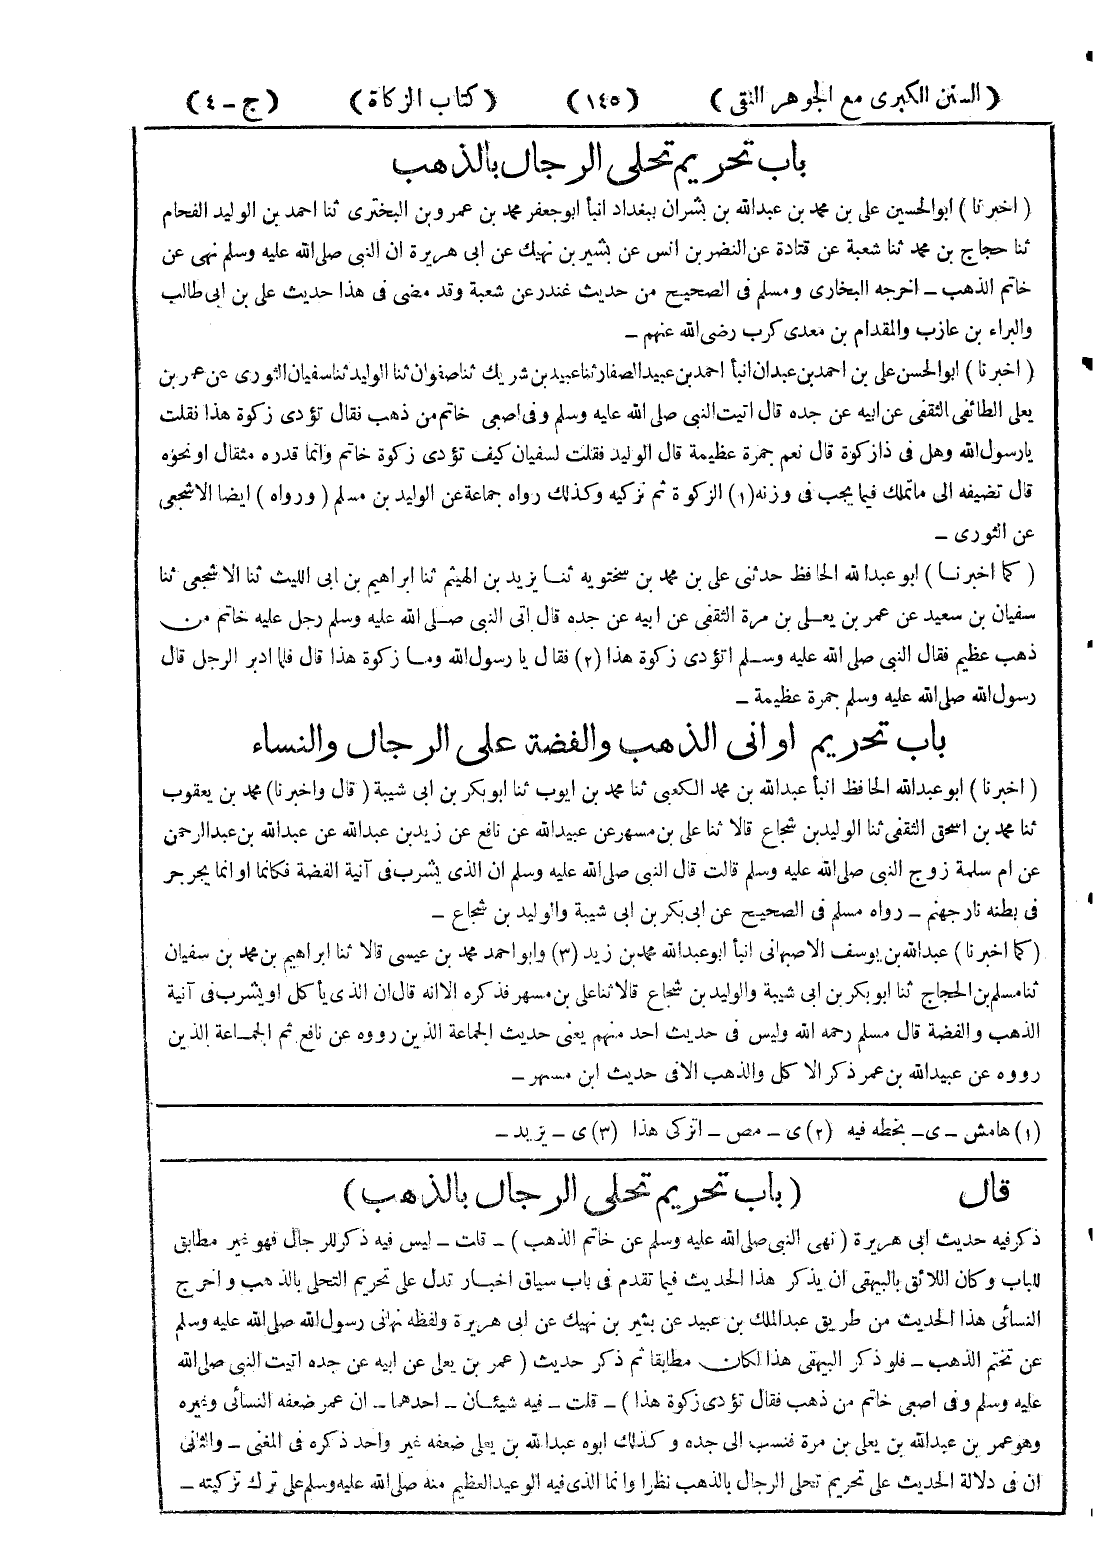 ( السنن الكبرى مع الجوهر النقى ) ( ١٤٥ ) ( كتاب الزكاة ) ( ج - ٤ )
باب تحريم تحلى الرجال بالذهب
( اخبرنا ) ابوالحسين على بن محمد بن عبدالله بن بشران ببغداد انبأ ابوجعفر محمد بن عمرو بن البخترى ثنا احمد بن الوليد الفحام
ثنا حجاج بن محمد ثنا شعبة عن قتادة عن النضر بن انس عن بشير بن نهيك عن ابى هريرة ان النبى صلى الله عليه وسلم نهى عن
خاتم الذهب – اخرجه البخارى ومسلم فى الصحيح من حديث غندر عن شعبة وقد مضى فى هذا حديث على بن ابى طالب
والبراء بن عازب والمقدام بن معدى كرب رضى الله عنهم –
( اخبرنا ) ابوالحسن على بن احمد بن عبدان انبأ احمد بن عبيد الصفار ثنا عبيد بن شريك ثنا صفوان ثنا الوليد ثنا سفيان الثورى عن عمر بن
يعلى الطائفى الثقفى عن ابيه عن جده قال اتيت النبى صلى الله عليه وسلم وفى اصبعى خاتم من ذهب فقال تؤدى زكوة هذا فقلت
يارسول الله وهل فى ذا زكوة قال نعم جمرة عظيمة قال الوليد فقلت لسفيان كيف تؤدى زكوة خاتم وانما قدره مثقال او نحوه
قال تضيفه الى ماتملك فيما يجب فى وزنه (١) الزكوة ثم تزكيه وكذلك رواه جماعة عن الوليد بن مسلم ( ورواه ) ايضا الاشجعى
عن الثورى –
( كما اخبرنا ) ابو عبدالله الحافظ حدثنى على بن محمد بن سختويه ثنا يزيد بن الهيثم ثنا ابراهيم بن ابى الليث ثنا الاشجعى ثنا
سفيان بن سعيد عن عمر بن يعلى بن مرة الثقفى عن ابيه عن جده قال اتى النبى صلى الله عليه وسلم رجل عليه خاتم من
ذهب عظيم فقال النبى صلى الله عليه وسلم اتؤدى زكوة هذا (٢) فقال يا رسول الله وما زكوة هذا قال فلما ادبر الرجل قال
رسول الله صلى الله عليه وسلم جمرة عظيمة –
باب تحريم اوانى الذهب والفضة على الرجال والنساء
( اخبرنا ) ابو عبدالله الحافظ انبأ عبدالله بن محمد الكعبى ثنا محمد بن ايوب ثنا ابوبكر بن ابى شيبة ( قال واخبرنا ) محمد بن يعقوب
ثنا محمد بن اسحق الثقفى ثنا الوليد بن شجاع قالا ثنا على بن مسهر عن عبيدالله عن نافع عن زيد بن عبدالله عن عبدالله بن عبدالرحمن
عن ام سلمة زوج النبى صلى الله عليه وسلم قالت قال النبى صلى الله عليه وسلم ان الذى يشرب فى آنية الفضة فكانما او انما يجرجر
فى بطنه نار جهنم – رواه مسلم فى الصحيح عن ابى بكر بن ابى شيبة والوليد بن شجاع –
( كما اخبرنا ) عبدالله بن يوسف الاصبهانى انبأ ابوعبدالله محمد بن زيد (٣) وابو احمد محمد بن عيسى قالا ثنا ابراهيم بن محمد بن سفيان
ثنا مسلم بن الحجاج ثنا ابوبكر بن ابى شيبة والوليد بن شجاع قالا ثنا على بن مسهر فذكره الا انه قال ان الذى يأكل او يشرب فى آنية
الذهب والفضة قال مسلم رحمه الله وليس فى حديث احد منهم يعنى حديث الجماعة الذين رووه عن نافع ثم الجماعة الذين
رووه عن عبيدالله بن عمر ذكر الاكل والذهب الا فى حديث ابن مسهر –
(١) هامش – ى – بخطه فيه (٢) ى – مص – اتزكى هذا (٣) ى – يزيد –
قال ( باب تحريم تحلى الرجال بالذهب )
ذكر فيه حديث ابى هريرة ( نهى النبى صلى الله عليه وسلم عن خاتم الذهب ) – قلت – ليس فيه ذكر للرجال فهو غير مطابق
للباب وكان اللائق بالبيهقى ان يذكر هذا الحديث فيما تقدم فى باب سياق اخبار تدل على تحريم التحلى بالذهب واخرج
النسائى هذا الحديث من طريق عبدالملك بن عبيد عن بشير بن نهيك عن ابى هريرة ولفظه نهانى رسول الله صلى الله عليه وسلم
عن تختم الذهب – فلو ذكر البيهقى هذا لكان مطابقا ثم ذكر حديث ( عمر بن يعلى عن ابيه عن جده اتيت النبى صلى الله
عليه وسلم وفى اصبعى خاتم من ذهب فقال تؤدى زكوة هذا ) – قلت – فيه شيئان – احدهما – ان عمر ضعفه النسائى وغيره
وهو عمر بن عبدالله بن يعلى بن مرة فنسب الى جده وكذلك ابوه عبدالله بن يعلى ضعفه غير واحد ذكره فى المغنى – والثانى
ان فى دلالة الحديث على تحريم تحلى الرجال بالذهب نظرا وانما الذى فيه الوعيد العظيم منه صلى الله عليه وسلم على ترك تزكيته –